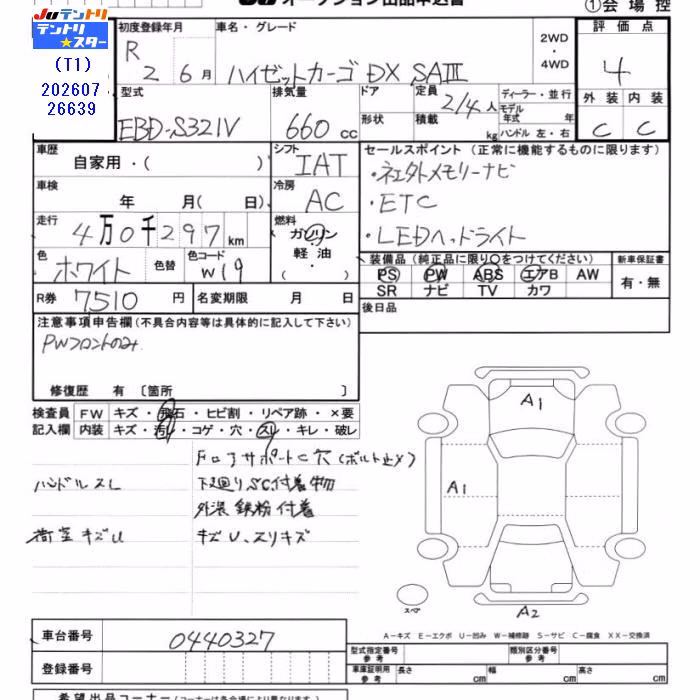 オークション出品申込書
①会場控
JU テントリ
テントリ★スター
(T1)
202607
26639
初度登録年月
R 2 6月
車名・グレード
ハイゼットカーゴ DX SAⅢ
2WD
・
4WD
評価点
4
外装 内装
C C
型式
EBD-S321V
排気量
660 cc
ドア
形状
定員
2/4人
積載
kg
ディーラー・並行
モデル
年式 年
ハンドル 左・右
車歴
自家用・( )
シフト
IAT
車検
年 月( 日)
冷房
AC
走行
4万0千297km
燃料
ガソリン
・
軽油
・
色
ホワイト
色替
色コード
W19
R券 7510 円
名変期限 月 日
セールスポイント(正常に機能するものに限ります)
・社外メモリーナビ
・ETC
・LEDヘッドライト
装備品(純正品に限り○をつけてください)
PS PW ABS エアB AW
SR ナビ TV カワ
新車保証書
有・無
後日品
注意事項申告欄(不具合内容等は具体的に記入して下さい)
PWフロントのみ
修復歴 有 〔箇所 〕
検査員
記入欄
FW キズ・飛石・ヒビ割・リペア跡・×要
内装 キズ・汚レ・コゲ・穴・スレ・キレ・破レ
ハンドルスレ
荷室キズU
Fロアサポート C 穴(ボルト止メ)
下廻りSC付着物
外装鉄粉付着
キズU、スリキズ
A1
A1
A2
スペア
A−キズ E−エクボ U−凹み W−補修跡 S−サビ C−腐食 XX−交換済
車台番号 0440327
登録番号
型式指定番号
参考
類別区分番号
参考
車庫証明用
参考
長さ cm
幅 cm
高さ cm
希望出品コーナー(コーナーは各会場により異なります)